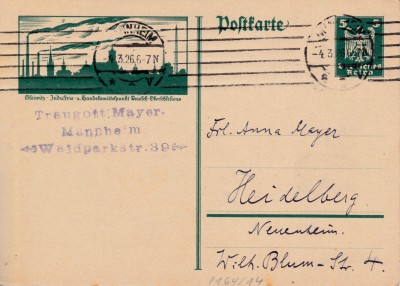 Postkarte
MANNHEIM
3.26.6-7N
4.3.26
5
5
Deutsches
Reich
Gleiwitz-Industrie-u. Handelsmittelpunkt Deutsch-Oberschlesiens
Traugott Mayer
Mannheim
Waldparkstr. 39
Frl. Anna Mayer
Heidelberg
Neuenheim.
Wilh. Blum-Str. 4.
P164/14